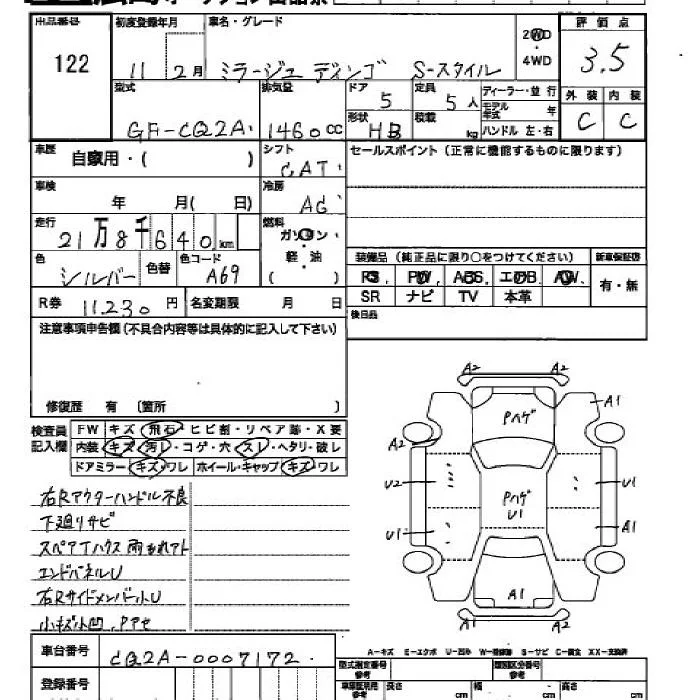 出品番号 初度登録年月 車名・グレード 評価点
122 11年2月 ミラージュ ディンゴ S-スタイル 2WD・4WD 3.5
型式 排気量 ドア 定員 ディーラー・並行 外装 内装
GF-CQ2A 1460cc 5 5人 モデル年式 年 C C
形状 HB 積載 kg ハンドル 左・右
車歴 自家用・( ) シフト CAT セールスポイント(正常に機能するものに限ります)
車検 年 月( 日) 冷房 AC
走行 21万8千640km 燃料 ガソリン・軽・油 ( )
色 シルバー 色替 色コード A69
装備品(純正品に限り○をつけてください) 新車保証書
P.S. P.W. ABS. エアB. A.W. 有・無
SR ナビ TV 本革
R券 11,230円 名変期限 月 日 後日品
注意事項申告欄(不具合内容等は具体的に記入して下さい)
修復歴 有 〔箇所 〕
検査員記入欄 FW キズ・飛石・ヒビ割・リペア跡・X要
内装 キズ・汚レ・コゲ・穴・スレ・ヘタリ・破レ
ドアミラー キズ・ワレ ホイール・キャップ キズ・ワレ
右Rアウターハンドル不良
下廻りサビ
スペアTハウス雨もれアト
エンドパネルU
右RサイドメンバーハU
小キズ小凹、Pアセ
A2 A2
A1
Pハゲ
A2
U2 Pハゲ U1 U1
U1 A1
A1
A2 A2
A-キズ E-エクボ U-凹み W-補修跡 S-サビ C-腐食 XX-交換済
車台番号 CQ2A-0007172
型式指定番号 類別区分番号
登録番号 長さ cm 幅 cm 高さ cm